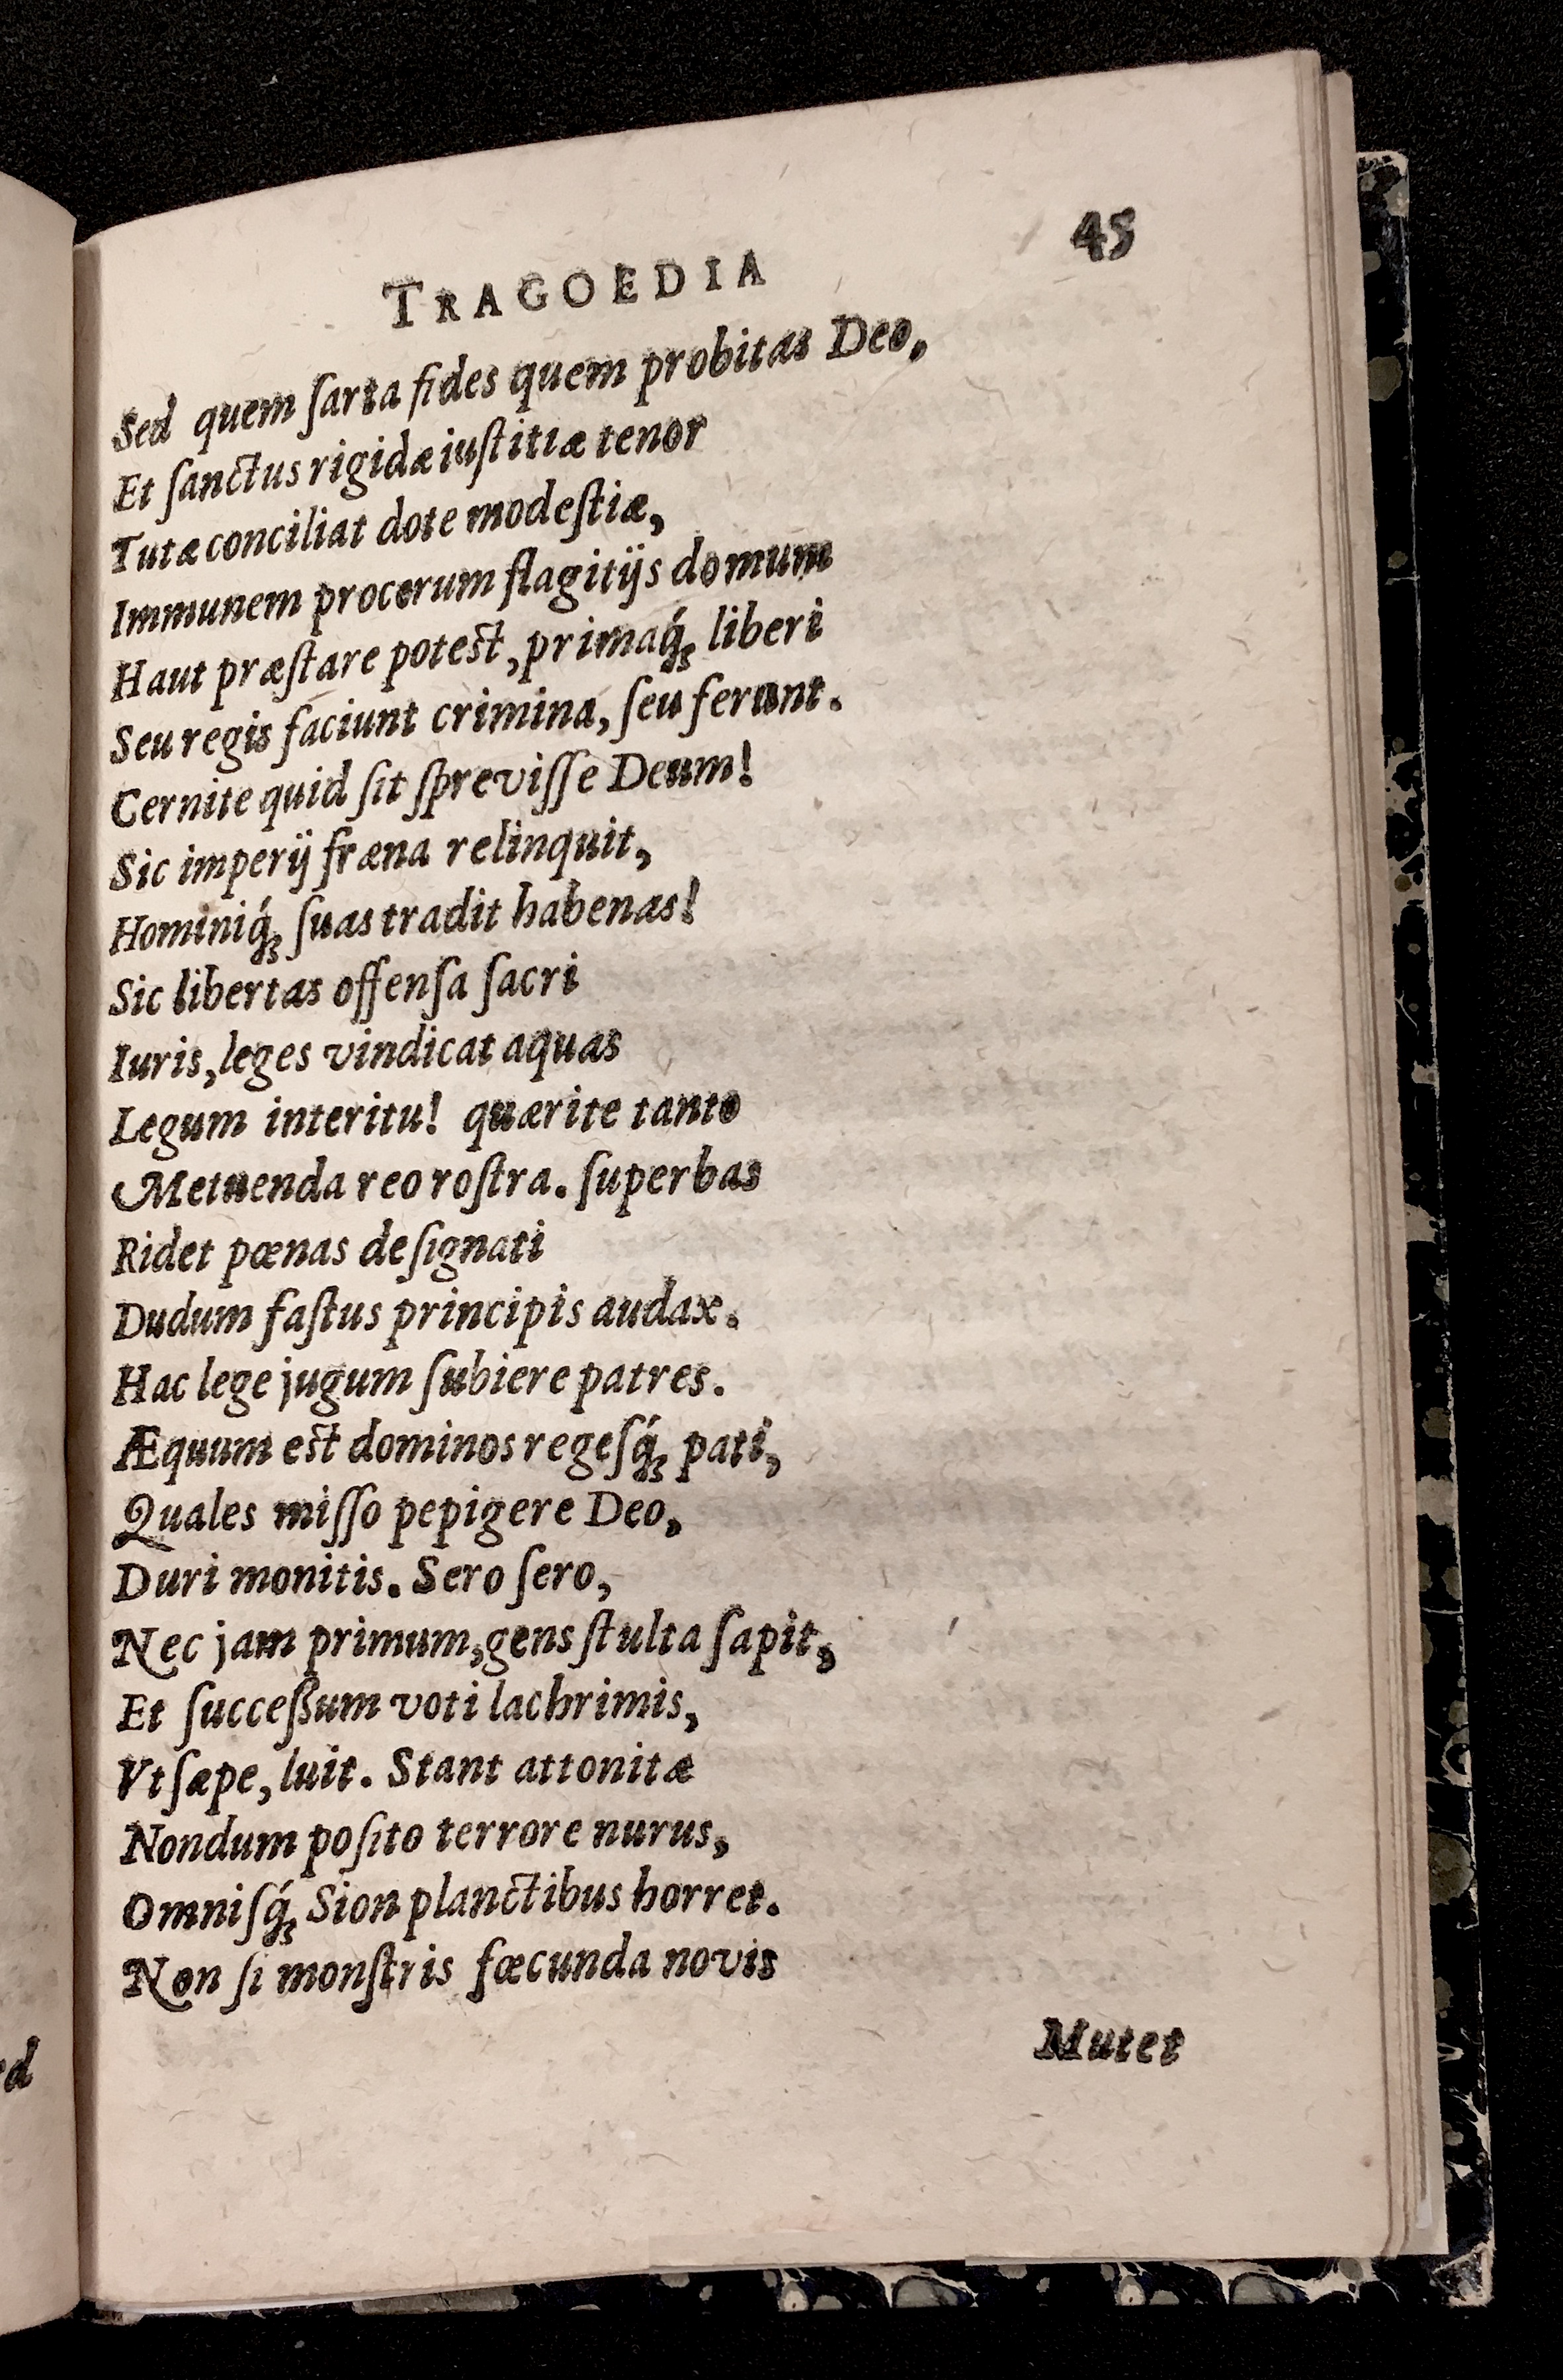 TRAGOEDIA 45
Sed quem ſarta fides quem probitas Deo,
Et ſanctus rigidæ iuſtitiæ tenor
Tutæ conciliat dote modeſtiæ,
Immunem procerum flagitijs domum
Haut præſtare poteſt, primaq́ꝫ liberi
Seu regis faciunt crimina, ſeu ferunt.
Cernite quid ſit ſpreviſſe Deum!
Sic imperij fræna relinquit,
Hominiq́ꝫ ſuas tradit habenas!
Sic libertas offenſa ſacri
Iuris, leges vindicat aquas
Legum interitu! quærite tanto
Metuenda reo roſtra. ſuperbas
Ridet pœnas deſignati
Dudum faſtus principis audax.
Hac lege jugum ſubiere patres.
Æquum eſt dominos regeſq́ꝫ pati,
Quales miſſo pepigere Deo,
Duri monitis. Sero ſero,
Nec jam primum, gens ſtulta ſapit,
Et ſucceſſum voti lachrimis,
Vt ſæpe, luit. Stant attonitæ
Nondum poſito terrore nurus,
Omniſq́ꝫ Sion planctibus horret.
Non ſi monſtris fœcunda novis
Mutet